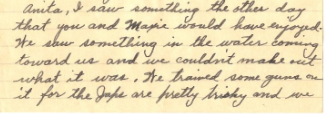 Anita, I saw something the other day
that you and Marie would have enjoyed.
We saw something in the water coming
toward us and we couldn't make out
what it was. We trained some guns on
it for the Japs are pretty trisky and we